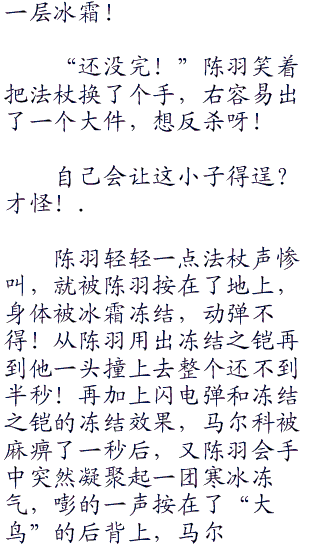 一层冰霜！
“还没完！”陈羽笑着
把法杖换了个手，右容易出
了一个大件，想反杀呀！
自己会让这小子得逞？
才怪！．
陈羽轻轻一点法杖声惨
叫，就被陈羽按在了地上，
身体被冰霜冻结，动弹不
得！从陈羽用出冻结之铠再
到他一头撞上去整个还不到
半秒！再加上闪电弹和冻结
之铠的冻结效果，马尔科被
麻痹了一秒后，又陈羽会手
中突然凝聚起一团寒冰冻
气，嘭的一声按在了“大
鸟”的后背上，马尔